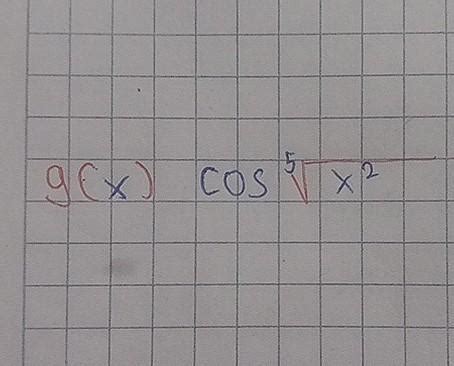 g(x) cos ⁵√x²